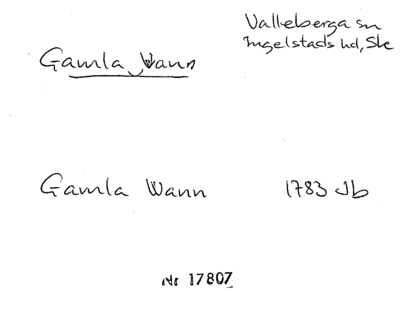 Valleberga sn
Ingelstads hd, Sk
Gamla Vann
Gamla Wann 1783 Jb
Nr 17807